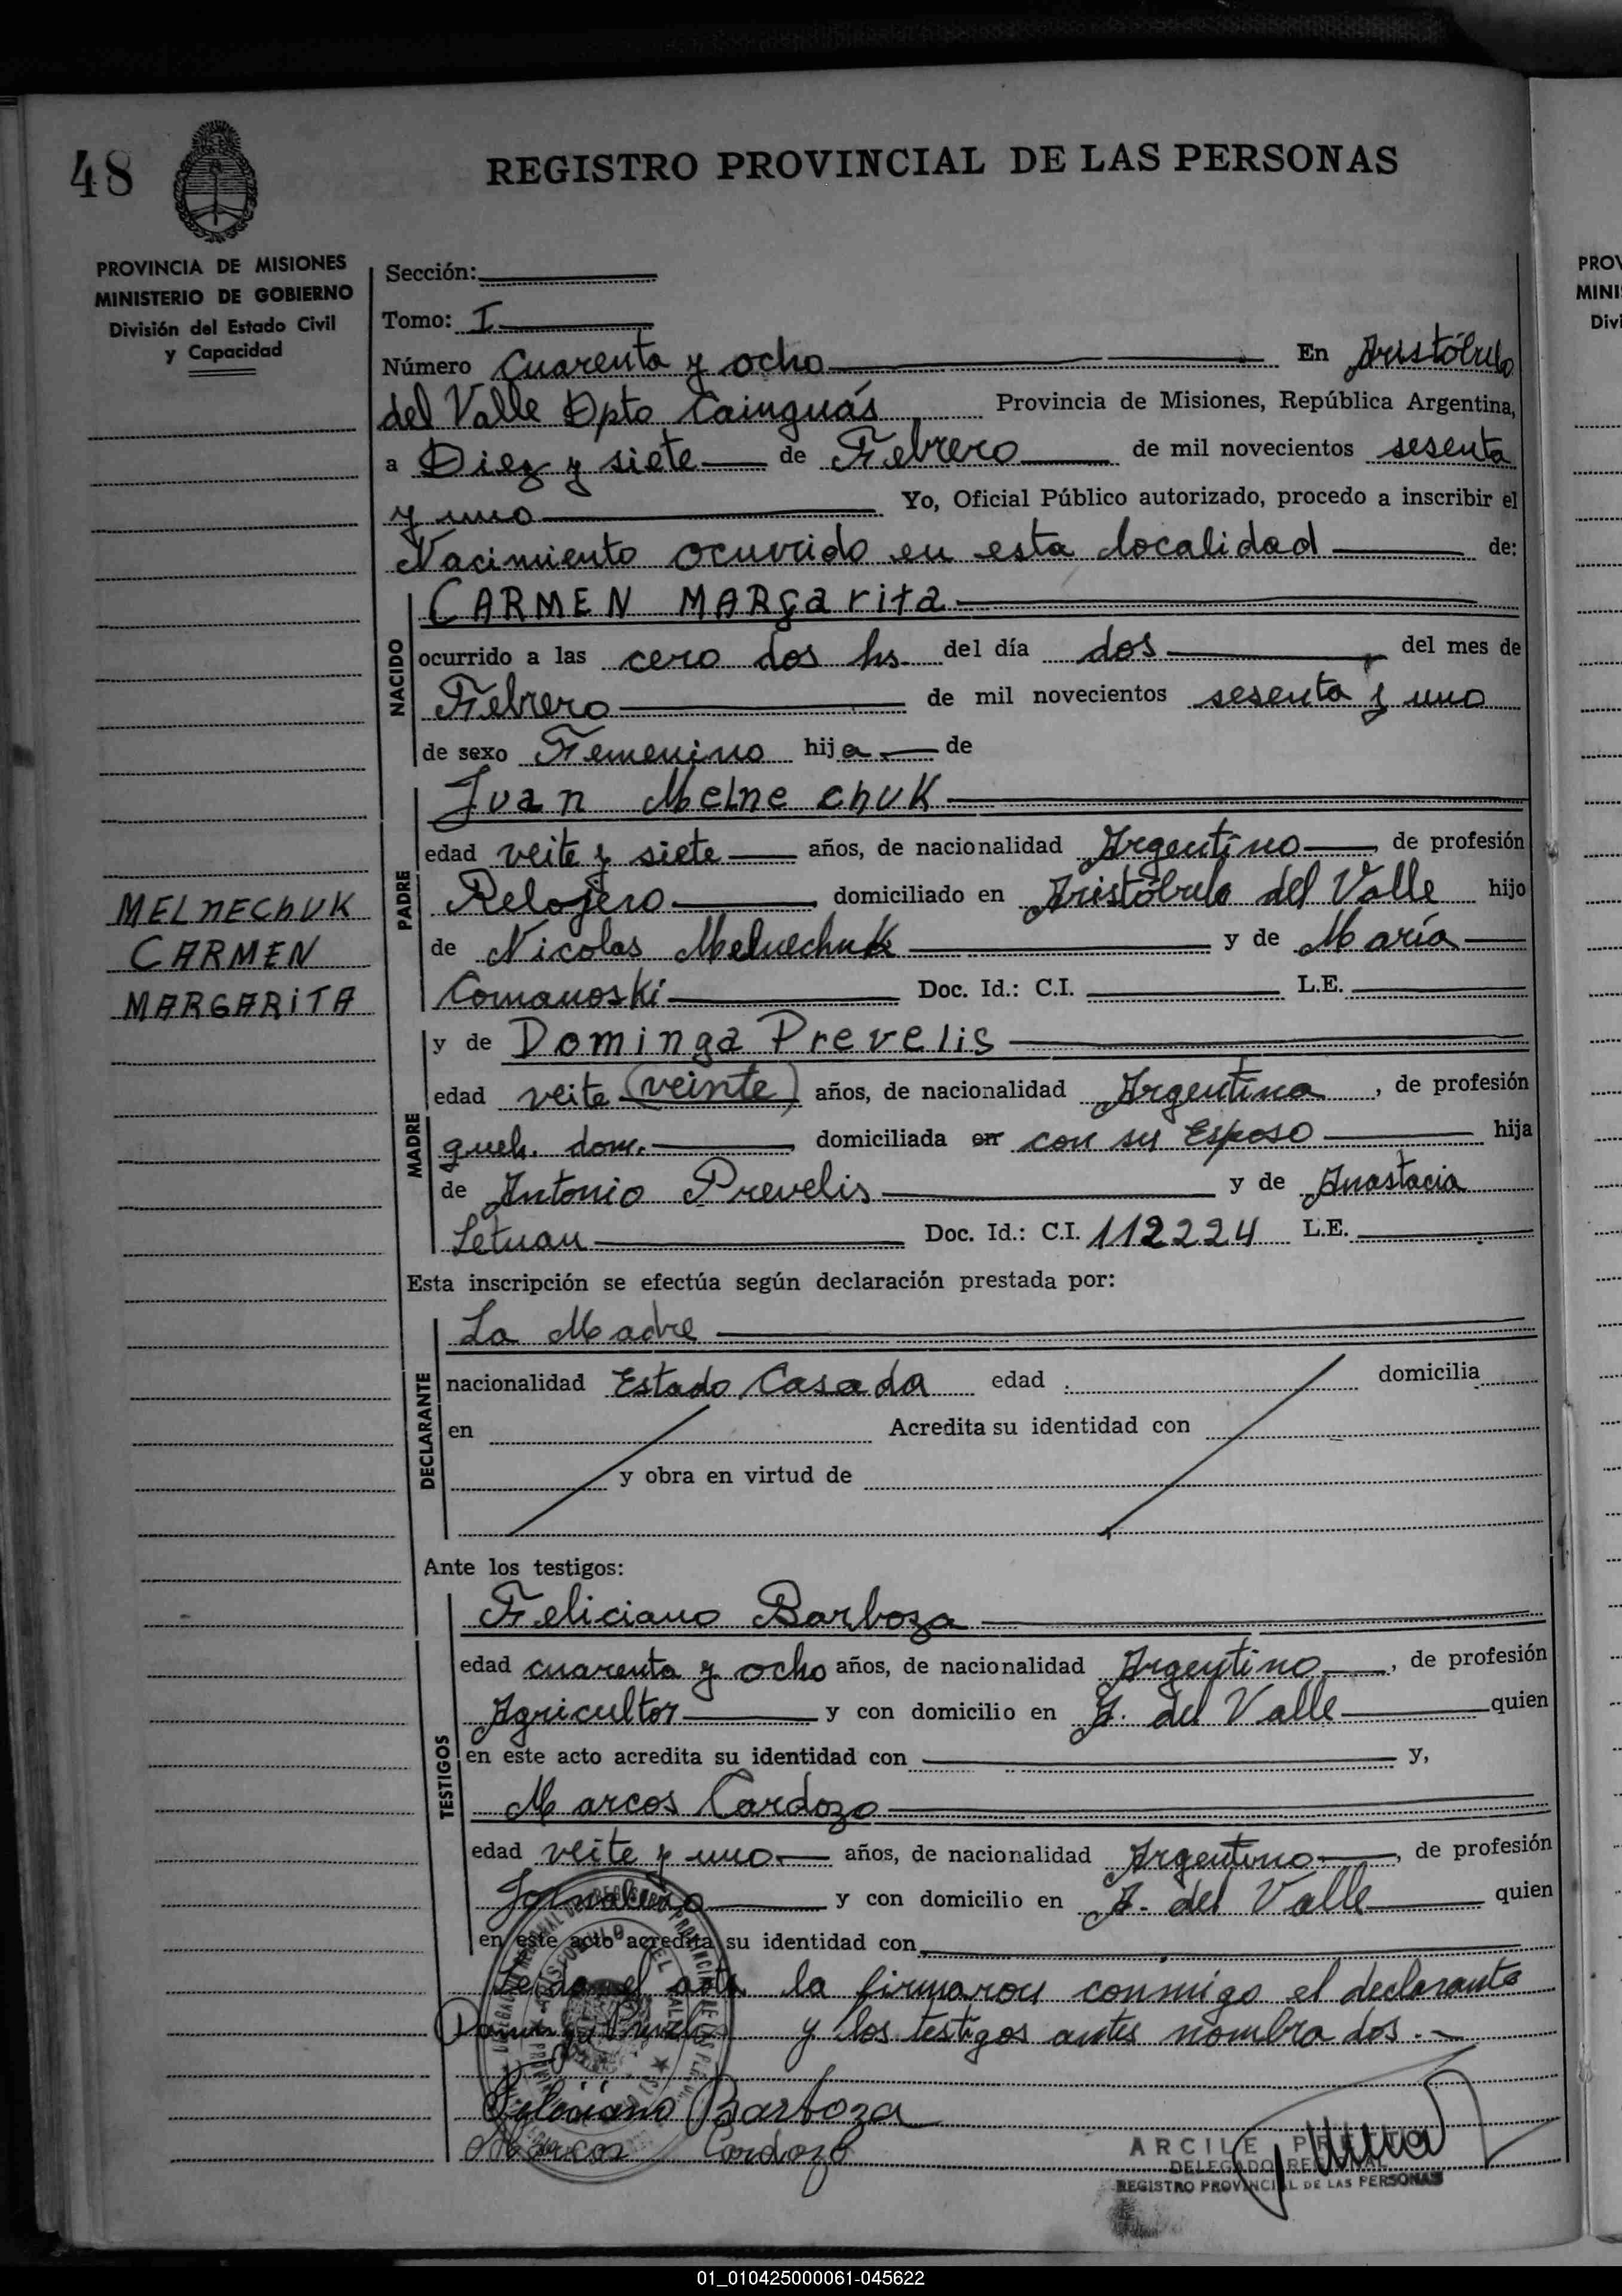 48
REGISTRO PROVINCIAL DE LAS PERSONAS
PROVINCIA DE MISIONES
MINISTERIO DE GOBIERNO
División del Estado Civil
y Capacidad
Sección:
Tomo: I
Número cuarenta y ocho En Aristóbulo
del Valle Dpto Cainguás Provincia de Misiones, República Argentina,
a Diez y siete de Febrero de mil novecientos sesenta
y uno Yo, Oficial Público autorizado, procedo a inscribir el
Nacimiento ocurrido en esta localidad de:
NACIDO
CARMEN MARgarita
ocurrido a las cero dos hs. del día dos del mes de
Febrero de mil novecientos sesenta y uno
de sexo Femenino hija de
PADRE
Juan Melnechuk
edad veite y siete años, de nacionalidad Argentino, de profesión
Relojero, domiciliado en Aristóbulo del Valle hijo
de Nicolas Melnechuk y de María
Comanoski Doc. Id.: C.I. L.E.
MELNECHUK
CARMEN
MARGARITA
MADRE
y de Dominga Prevelis
edad veite (veinte) años, de nacionalidad Argentina, de profesión
queh. dom., domiciliada en con su Esposo hija
de Antonio Prevelis y de Anastacia
Letuan Doc. Id.: C.I. 112224 L.E.
Esta inscripción se efectúa según declaración prestada por:
DECLARANTE
La Madre
nacionalidad Estado Casada edad domicilia
en Acredita su identidad con
y obra en virtud de
Ante los testigos:
TESTIGOS
Feliciano Barboza
edad cuarenta y ocho años, de nacionalidad Argentino, de profesión
Agricultor y con domicilio en A. del Valle quien
en este acto acredita su identidad con y,
Marcos Cardozo
edad veite y uno años, de nacionalidad Argentino, de profesión
Jornalero y con domicilio en A. del Valle quien
en este acto acredita su identidad con
Leida el acta la firmaron conmigo el declarante
y los testigos antes nombrados.-
Dominga Prevelis
Feliciano Barboza
Marcos Cardozo
ARCILE
DELEGADO REGIONAL
REGISTRO PROVINCIAL DE LAS PERSONAS
PROV
MINI
Divi
01_010425000061-045622